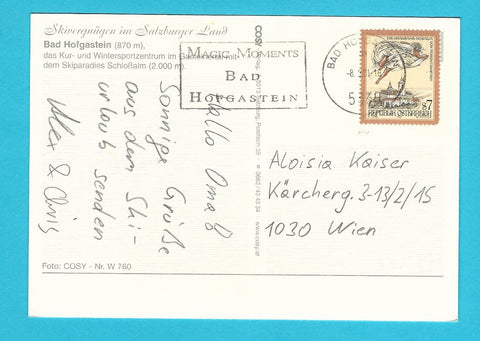 Skivergnügen im Salzburger Land
Bad Hofgastein (870 m),
das Kur- und Wintersportzentrum im Gasteinertal mit
dem Skiparadies Schloßalm (2.000 m).
Hallo Oma!
Sonnige Grüße
aus dem Ski-
urlaub senden
Alex & Chris
Foto: COSY - Nr. W 760
COSY
Postfach 35
0662/42 43 34
www.cosy.at
MAGIC MOMENTS
BAD
HOFGASTEIN
BAD HO
REPUBLIK ÖSTERREICH
S7
Aloisia Kaiser
Kärcherg. 3-13/2/15
1030 Wien